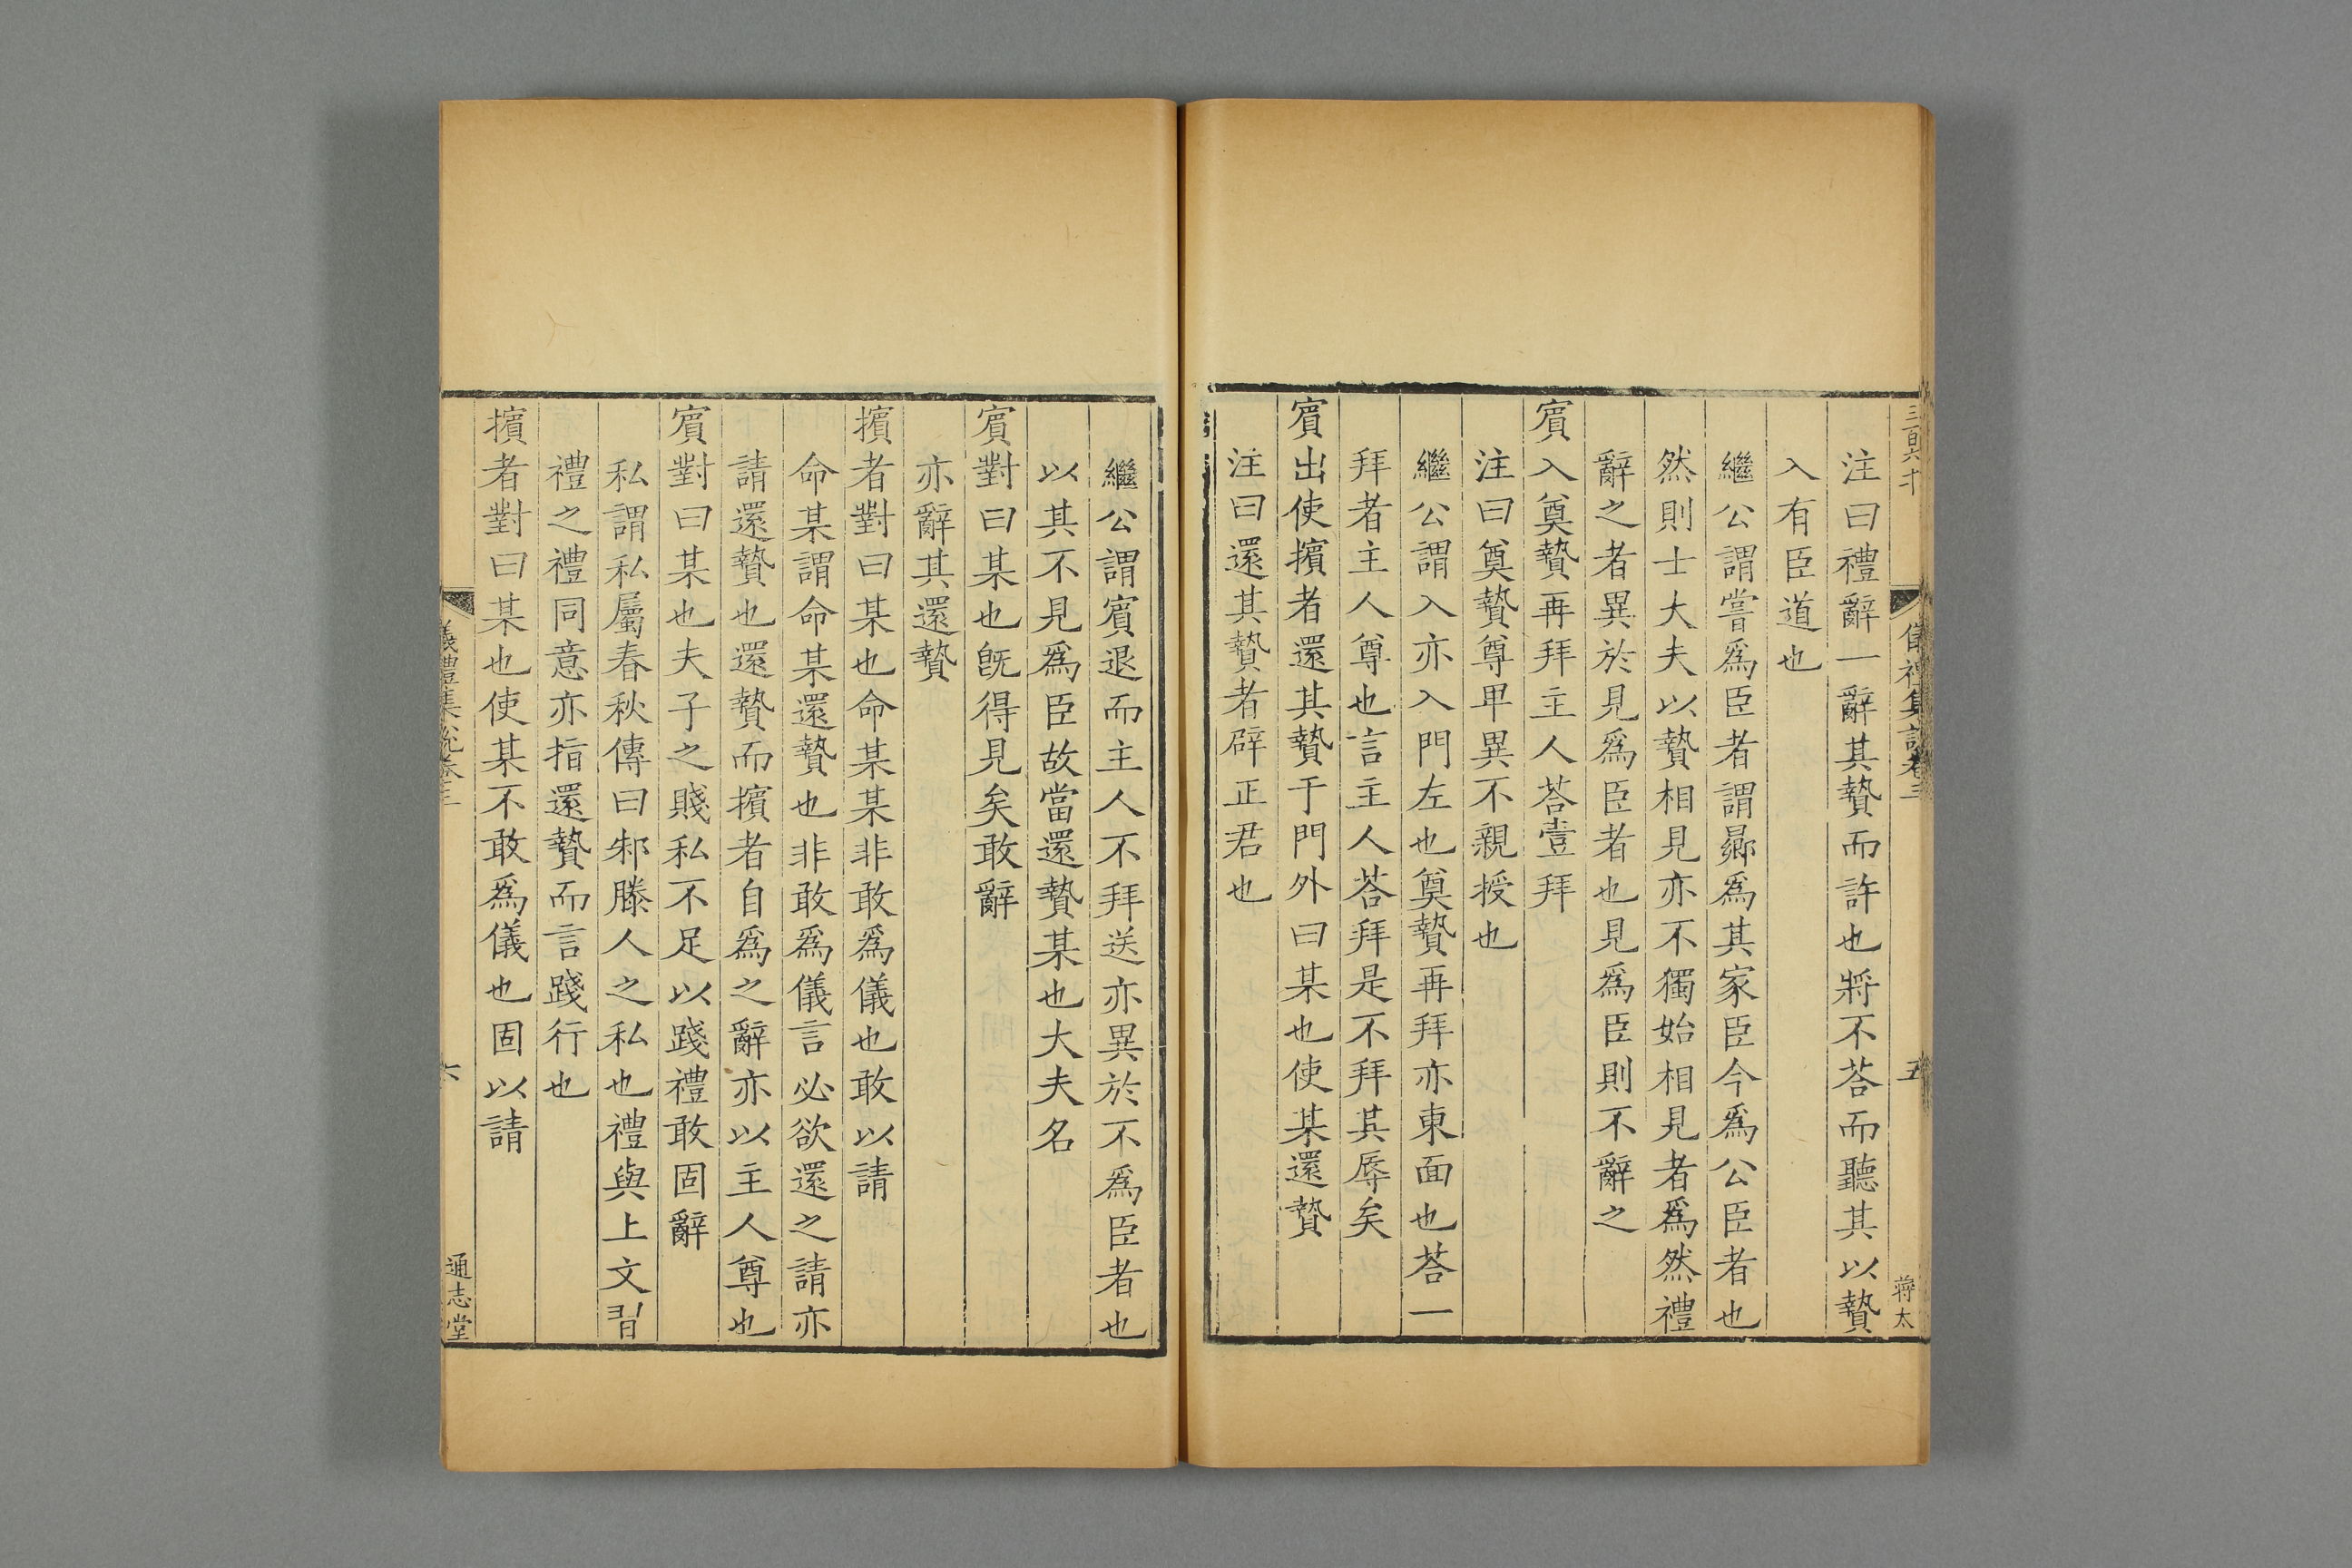 注曰禮辭一辭其贄而許也將不荅而聽其以贄
入有臣道也
繼公謂嘗爲臣者謂曏爲其家臣今爲公臣者也
然則士大夫以贄相見亦不獨始相見者爲然禮
辭之者異於見爲臣者也見爲臣則不辭之
賔入奠贄再拜主人荅壹拜
注曰奠贄尊卑異不親授也
繼公謂入亦入門左也奠贄再拜亦東面也荅一
拜者主人尊也言主人荅拜是不拜其辱矣
賔出使擯者還其贄于門外曰某也使某還贄
注曰還其贄者辟正君也
繼公謂賔退而主人不拜送亦異於不爲臣者也
以其不見爲臣故當還贄某也大夫名
賔對曰某也旣得見矣敢辭
亦辭其還贄
擯者對曰某也命某某非敢爲儀也敢以請
命某謂命某還贄也非敢爲儀言必欲還之請亦
請還贄也還贄而擯者自爲之辭亦以主人尊也
賔對曰某也夫子之賤私不足以踐禮敢固辭
私謂私屬春秋傳曰邾滕人之私也禮與上文習
禮之禮同意亦指還贄而言踐行也
擯者對曰某也使某不敢爲儀也固以請
儀禮集說卷三
六
通志堂
五
蔣太